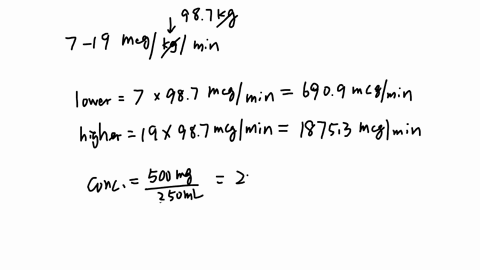 98.7 kg
7-19 mcg/kg/min
lower = 7 × 98.7 mcg/min = 690.9 mcg/min
higher = 19 × 98.7 mcg/min = 1875.3 mcg/min
Conc. = 500mg/250mL = 2